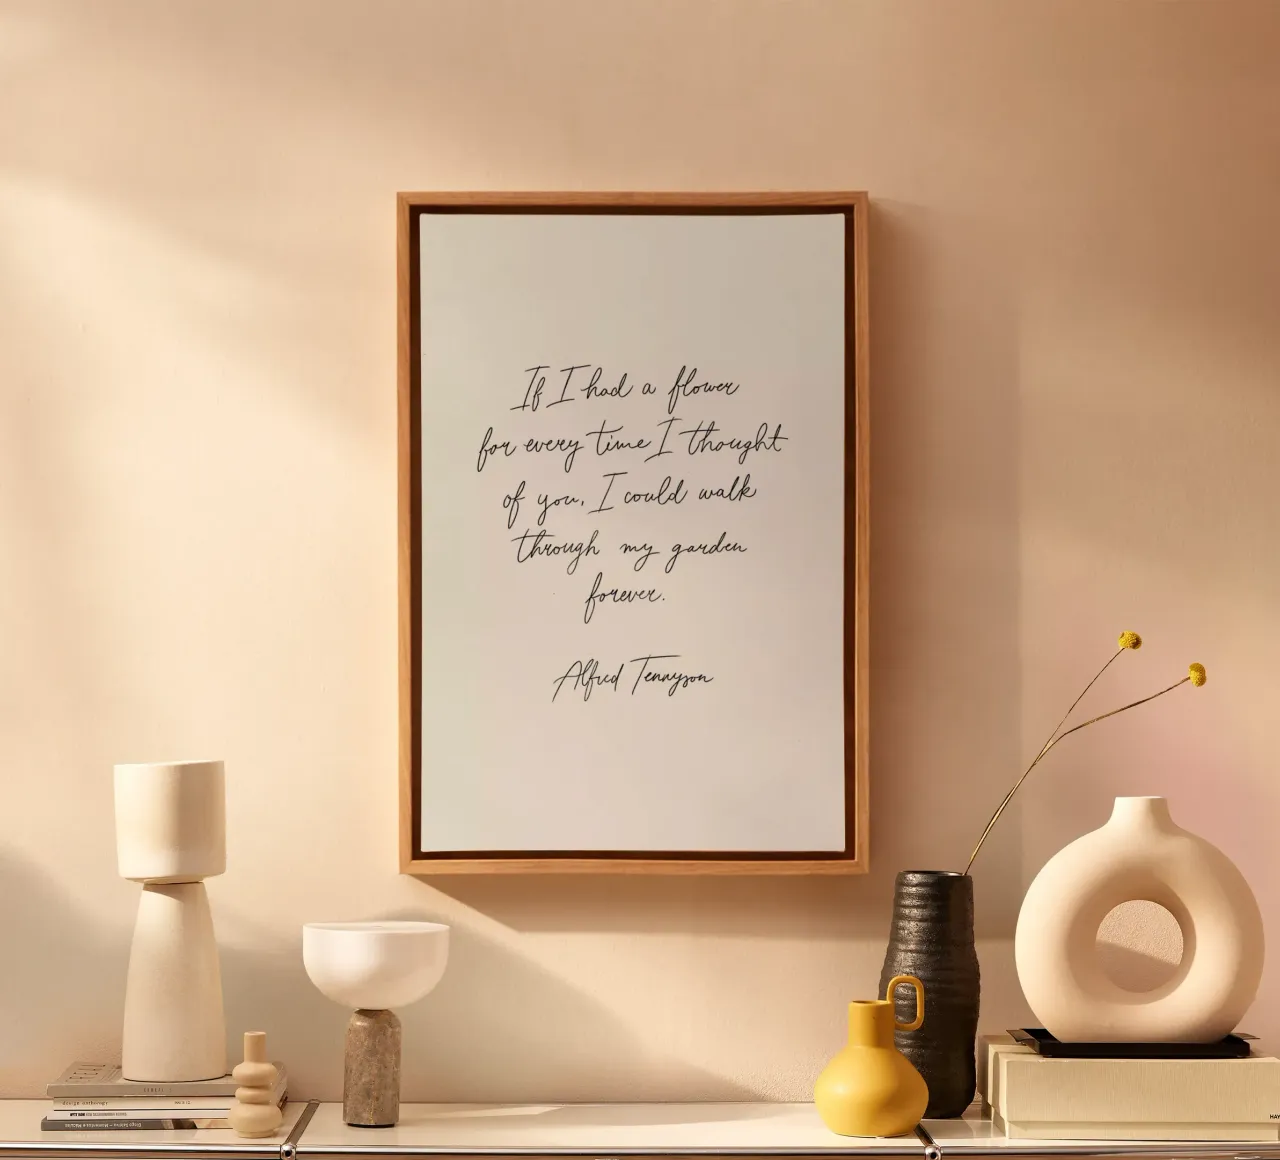 If I had a flower
for every time I thought
of you, I could walk
through my garden
forever.
Alfred Tennyson
HAY